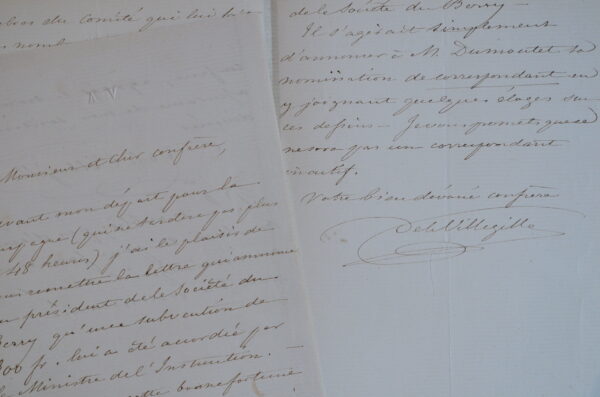 du Comité qui lui
noms
Monsieur et cher confrère,
avant mon départ pour la
(qui ne tardera pas plus
48 heures) j'ai le plaisir de
remettre la lettre qui annonce
président de la Société du
Berry qu'une subvention de
00 fr. lui a été accordée par
Ministre de l'Instruction. —
bonne fortune
de la Société du Berry —
Il s'agirait simplement
d'annoncer à M. Dumoutet sa
nomination de correspondant en
y joignant quelques éloges sur
ces dessins — Je vous promets que ce
ne sera pas un correspondant
inactif.
Votre bien dévoué confrère
De la Villegille